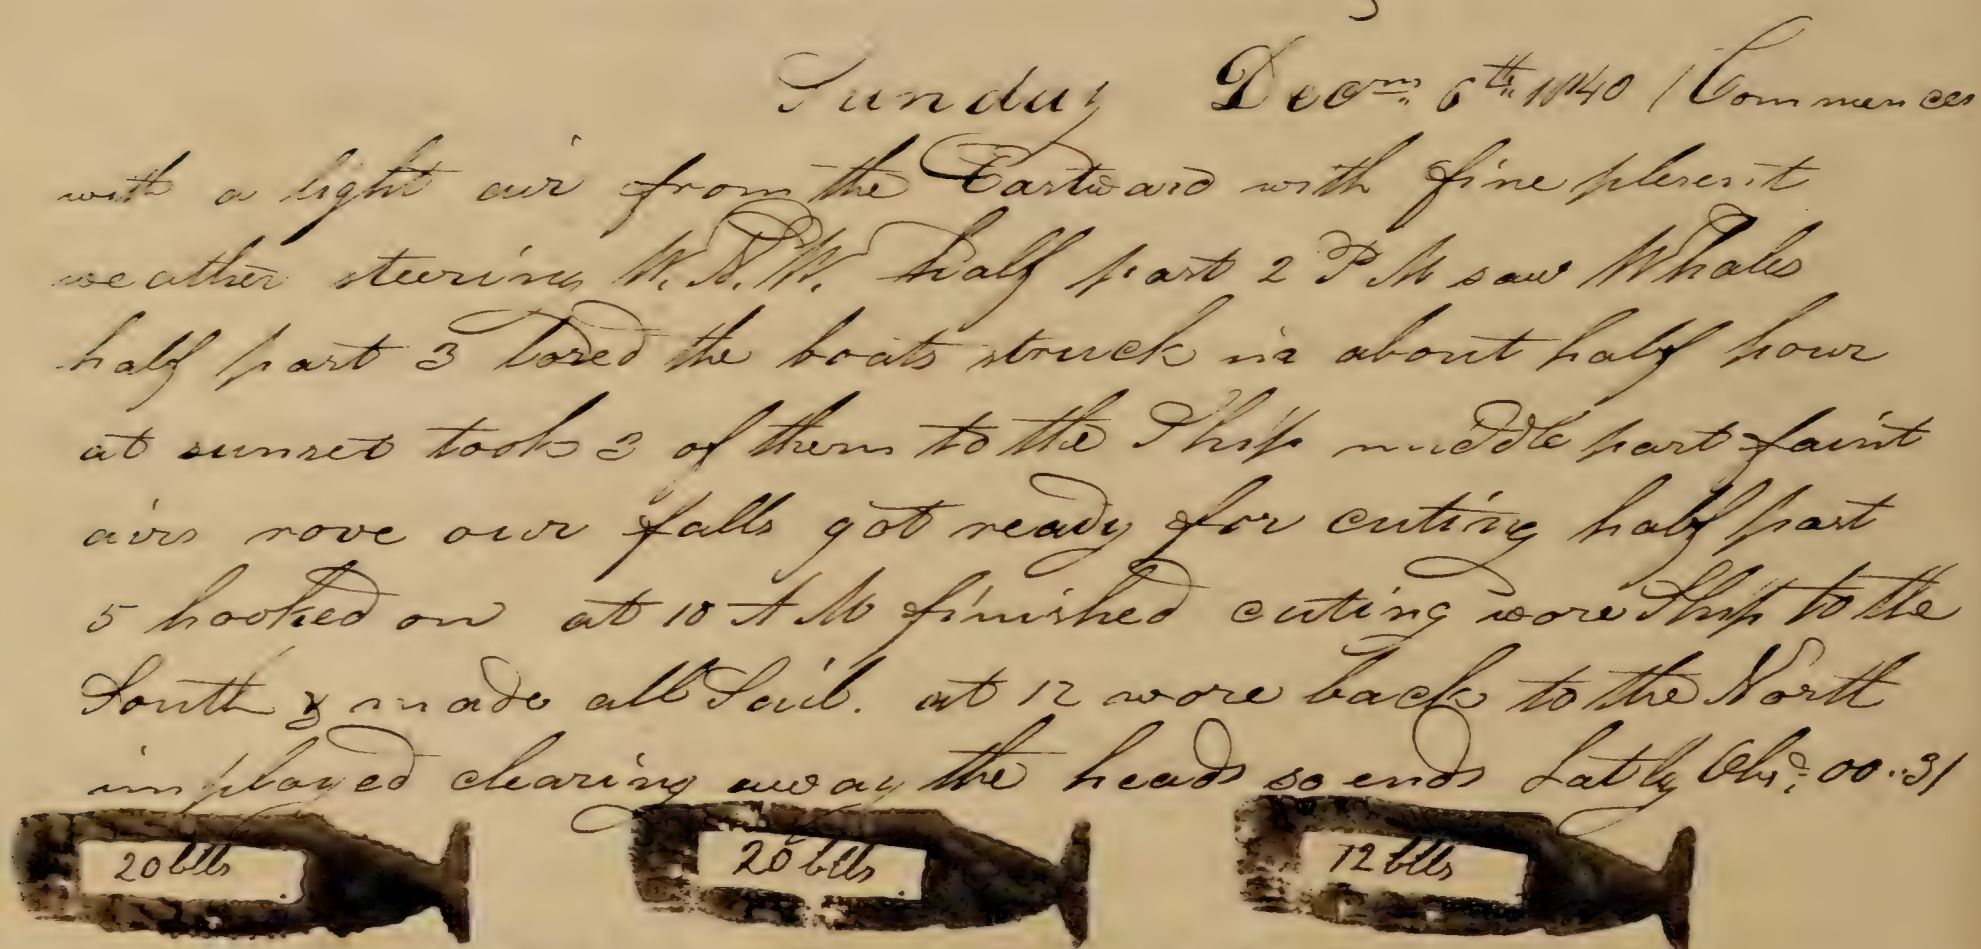 Sunday Decm 6th 1840 / Commences
with a light air from the Eastward with fine plesent
weather steering W.N.W. half past 2 P M saw Whales
half past 3 lored the boats struck in about half hour
at sunset took 3 of them to the Ship middle part faint
airs rove our falls got ready for cuting half past
5 hooked on at 10 A M finished cuting wore Ship to the
South & made all Sail. at 12 wore back to the North
imployed clearing away the heads so ends Lat by Obs: 00..31
20 blls 20 blls 12 blls